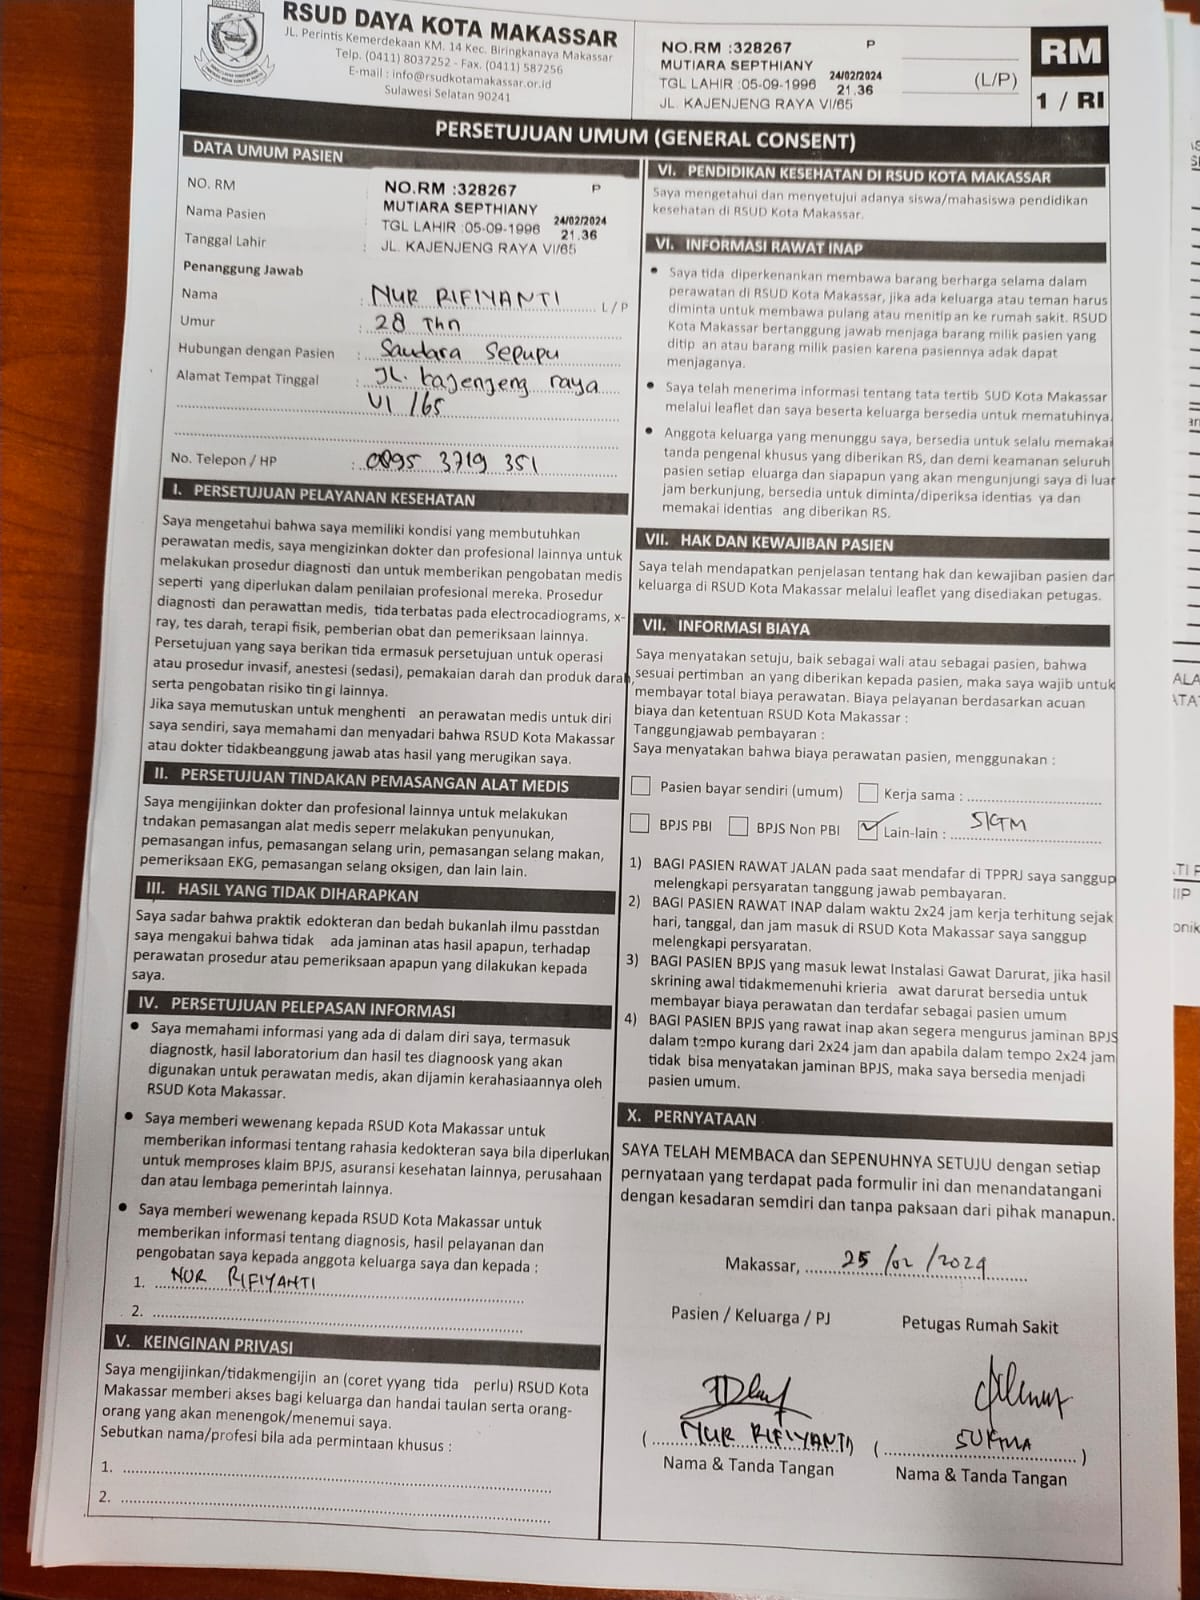 RSUD DAYA KOTA MAKASSAR
JL. Perintis Kemerdekaan KM. 14 Kec. Biringkanaya Makassar
Telp. (0411) 8037252 - Fax. (0411) 587256
E-mail : info@rsudkotamakassar.or.id
Sulawesi Selatan 90241
NO.RM :328267 P
MUTIARA SEPTHIANY
TGL LAHIR :05-09-1996 24/02/2024 21.36
JL. KAJENJENG RAYA VI/65
(L/P)
RM
1 / RI
PERSETUJUAN UMUM (GENERAL CONSENT)
DATA UMUM PASIEN
NO. RM
NO.RM :328267 P
Nama Pasien
MUTIARA SEPTHIANY
TGL LAHIR :05-09-1996 24/02/2024 21.36
Tanggal Lahir : JL. KAJENJENG RAYA VI/65
Penanggung Jawab
Nama : NUR RIFIYANTI L / P
Umur : 28 Thn
Hubungan dengan Pasien : Saudara Sepupu
Alamat Tempat Tinggal : JL. kajenjeng raya
VI /65
No. Telepon / HP : 0895 3719 351
I. PERSETUJUAN PELAYANAN KESEHATAN
Saya mengetahui bahwa saya memiliki kondisi yang membutuhkan
perawatan medis, saya mengizinkan dokter dan profesional lainnya untuk
melakukan prosedur diagnosti dan untuk memberikan pengobatan medis
seperti yang diperlukan dalam penilaian profesional mereka. Prosedur
diagnosti dan perawattan medis, tida terbatas pada electrocadiograms, x-
ray, tes darah, terapi fisik, pemberian obat dan pemeriksaan lainnya.
Persetujuan yang saya berikan tida ermasuk persetujuan untuk operasi
atau prosedur invasif, anestesi (sedasi), pemakaian darah dan produk darah,
serta pengobatan risiko tingi lainnya.
Jika saya memutuskan untuk menghenti an perawatan medis untuk diri
saya sendiri, saya memahami dan menyadari bahwa RSUD Kota Makassar
atau dokter tidakbeanggung jawab atas hasil yang merugikan saya.
II. PERSETUJUAN TINDAKAN PEMASANGAN ALAT MEDIS
Saya mengijinkan dokter dan profesional lainnya untuk melakukan
tndakan pemasangan alat medis seperr melakukan penyunukan,
pemasangan infus, pemasangan selang urin, pemasangan selang makan,
pemeriksaan EKG, pemasangan selang oksigen, dan lain lain.
III. HASIL YANG TIDAK DIHARAPKAN
Saya sadar bahwa praktik edokteran dan bedah bukanlah ilmu passtdan
saya mengakui bahwa tidak ada jaminan atas hasil apapun, terhadap
perawatan prosedur atau pemeriksaan apapun yang dilakukan kepada
saya.
IV. PERSETUJUAN PELEPASAN INFORMASI
• Saya memahami informasi yang ada di dalam diri saya, termasuk
diagnostk, hasil laboratorium dan hasil tes diagnoosk yang akan
digunakan untuk perawatan medis, akan dijamin kerahasiaannya oleh
RSUD Kota Makassar.
• Saya memberi wewenang kepada RSUD Kota Makassar untuk
memberikan informasi tentang rahasia kedokteran saya bila diperlukan
untuk memproses klaim BPJS, asuransi kesehatan lainnya, perusahaan
dan atau lembaga pemerintah lainnya.
• Saya memberi wewenang kepada RSUD Kota Makassar untuk
memberikan informasi tentang diagnosis, hasil pelayanan dan
pengobatan saya kepada anggota keluarga saya dan kepada :
1. NUR RIFIYANTI
2.
V. KEINGINAN PRIVASI
Saya mengijinkan/tidakmengijin an (coret yyang tida perlu) RSUD Kota
Makassar memberi akses bagi keluarga dan handai taulan serta orang-
orang yang akan menengok/menemui saya.
Sebutkan nama/profesi bila ada permintaan khusus :
1.
2.
VI. PENDIDIKAN KESEHATAN DI RSUD KOTA MAKASSAR
Saya mengetahui dan menyetujui adanya siswa/mahasiswa pendidikan
kesehatan di RSUD Kota Makassar.
VI. INFORMASI RAWAT INAP
• Saya tida diperkenankan membawa barang berharga selama dalam
perawatan di RSUD Kota Makassar, jika ada keluarga atau teman harus
diminta untuk membawa pulang atau menitip an ke rumah sakit. RSUD
Kota Makassar bertanggung jawab menjaga barang milik pasien yang
ditip an atau barang milik pasien karena pasiennya adak dapat
menjaganya.
• Saya telah menerima informasi tentang tata tertib SUD Kota Makassar
melalui leaflet dan saya beserta keluarga bersedia untuk mematuhinya.
• Anggota keluarga yang menunggu saya, bersedia untuk selalu memakai
tanda pengenal khusus yang diberikan RS, dan demi keamanan seluruh
pasien setiap eluarga dan siapapun yang akan mengunjungi saya di luar
jam berkunjung, bersedia untuk diminta/diperiksa identias ya dan
memakai identias ang diberikan RS.
VII. HAK DAN KEWAJIBAN PASIEN
Saya telah mendapatkan penjelasan tentang hak dan kewajiban pasien dan
keluarga di RSUD Kota Makassar melalui leaflet yang disediakan petugas.
VII. INFORMASI BIAYA
Saya menyatakan setuju, baik sebagai wali atau sebagai pasien, bahwa
sesuai pertimban an yang diberikan kepada pasien, maka saya wajib untuk
membayar total biaya perawatan. Biaya pelayanan berdasarkan acuan
biaya dan ketentuan RSUD Kota Makassar :
Tanggungjawab pembayaran :
Saya menyatakan bahwa biaya perawatan pasien, menggunakan :
Pasien bayar sendiri (umum) Kerja sama :
BPJS PBI BPJS Non PBI Lain-lain : SKTM
1) BAGI PASIEN RAWAT JALAN pada saat mendafar di TPPRJ saya sanggup
melengkapi persyaratan tanggung jawab pembayaran.
2) BAGI PASIEN RAWAT INAP dalam waktu 2x24 jam kerja terhitung sejak
hari, tanggal, dan jam masuk di RSUD Kota Makassar saya sanggup
melengkapi persyaratan.
3) BAGI PASIEN BPJS yang masuk lewat Instalasi Gawat Darurat, jika hasil
skrining awal tidakmemenuhi krieria awat darurat bersedia untuk
membayar biaya perawatan dan terdafar sebagai pasien umum
4) BAGI PASIEN BPJS yang rawat inap akan segera mengurus jaminan BPJS
dalam tempo kurang dari 2x24 jam dan apabila dalam tempo 2x24 jam
tidak bisa menyatakan jaminan BPJS, maka saya bersedia menjadi
pasien umum.
X. PERNYATAAN
SAYA TELAH MEMBACA dan SEPENUHNYA SETUJU dengan setiap
pernyataan yang terdapat pada formulir ini dan menandatangani
dengan kesadaran semdiri dan tanpa paksaan dari pihak manapun.
Makassar, 25 /02 /2024
Pasien / Keluarga / PJ Petugas Rumah Sakit
( NUR RIFIYANTI ) ( SUKMA )
Nama & Tanda Tangan Nama & Tanda Tangan